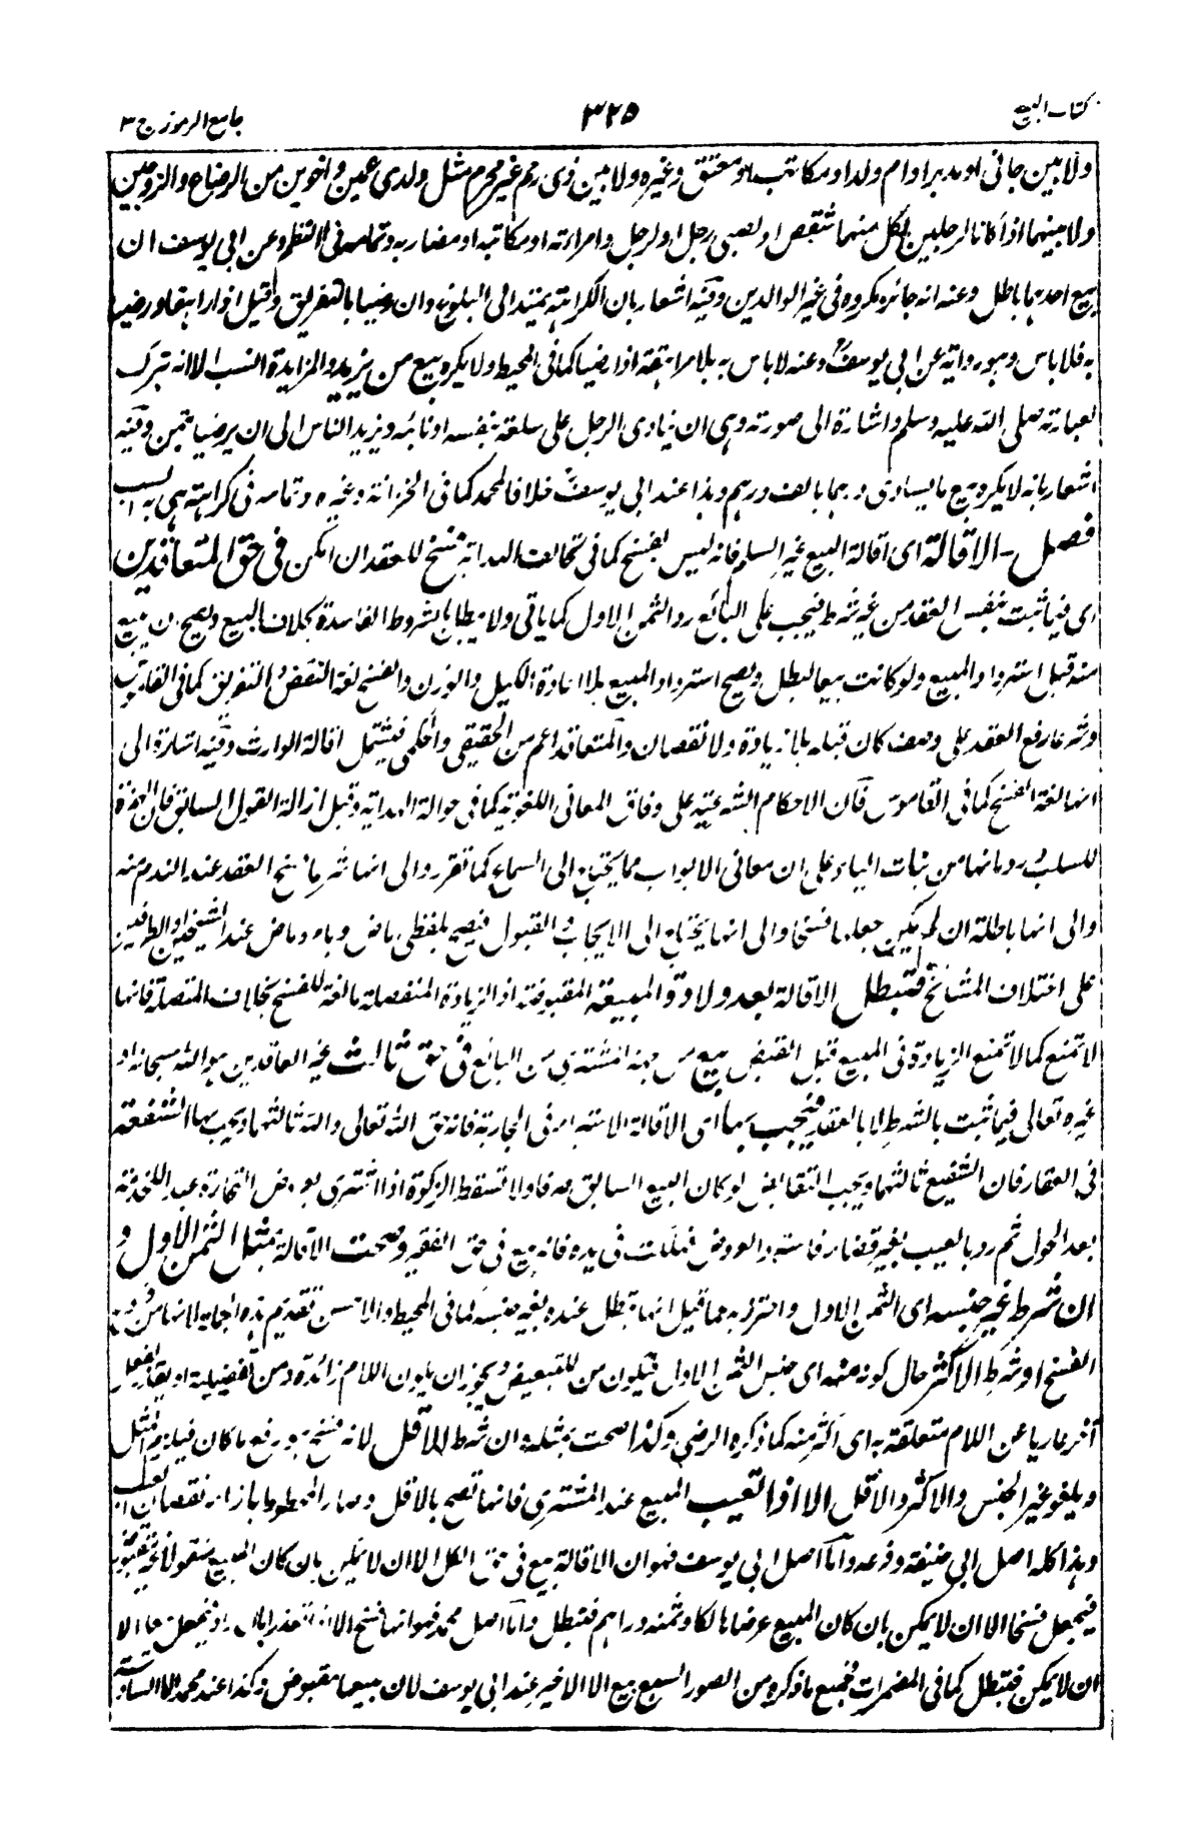 كتاب البيع
٣٢٥
جامع الرموز ج ٣
ولا بين جانى او مدبر او ام ولد او مكاتب او معتق وغيره ولا بين ذى رحم غير محرم مثل ولدى عمين واخوين من الرضاع والزوجين
ولا بينهما اذا كانا لرجلين لكل منهما شقص او لصبى رجل او لرجل وامراءته او مكاتبه او مضاربه وتمامه فى النظم وعن ابى يوسف ان
بيع احدهما باطل وعنه انه جائز مكروه فى غير الوالدين وفيه اشعار بان الكراهة يمتد الى البلوغ وان رضيا بالتفريق وقيل اذا راهقا ورضيا
به فلا باس وهو رواية عن ابى يوسف وعنه لا باس به بلا مراهقة اذا رضيا كما فى المحيط ولا يكره بيع من يزيد والمزايدة انسب الا انه تبرك
لعبارته صلى الله عليه وسلم واشارة الى صورته وهى ان ينادى الرجل على سلعة بنفسه او نائبه ويزيد الناس الى ان يرضيا بثمن وفيه
اشعار بانه لا يكره بيع ما يساوى درهما بالف درهم وهذا عند ابى يوسف خلافا لمحمد كما فى الخزانة وغيره وتمامه فى كراهته
فصل - الاقالة اى اقالة البيع غير السلم فانه ليس بفسخ كما فى تحالف الهداية فسخ للعقد ان امكن فى حق المتعاقدين
اى فيما ثبت بنفس العقد من غير شرط فيجب على البائع رد الثمن الاول كما ياتى ولا يبطل بالشروط الفاسدة بخلاف البيع ويصح ان يبيع
منه قبل استرداد المبيع ولو كانت بيعا لبطل ويصح استرداد المبيع بلا اعادة الكيل والوزن والفسخ لغة النقض والتفريق كما فى القاموس
وشرعا رفع العقد على وصف كان قبله بلا زيادة ولا نقصان والمتعاقد اعم من الحقيقى والحكمى فيشتمل اقالة الوارث وفيه اشارة الى
انها لغة الفسخ كما فى القاموس فان الاحكام الشرعية على وفاق المعانى اللغوية كما فى حوالة الهداية وقيل ازالة القول السابق فان الهمزة
للسلب ورد بانها من بنات الياء على ان معانى الابواب مما يحتاج الى السماع كما تقرر والى انها شرعا فسخ العقد عند الندم منه
والى انها باطلة ان لم يكن جعلها فسخا والى انها يحتاج الى الايجاب والقبول فيصح بلفظى ماض وبامر وماض عند الشيخين او الطرفين
على اختلاف المشائخ فتبطل الاقالة بعد ولادة المبيعة المقبوضة اذ الزيادة المنفصلة مانعة للفسخ بخلاف المتصلة فانها
لا تمنع كما لا تمنع الزيادة فى المبيع قبل القبض بيع من جهة المشترى من البائع فى حق ثالث غير العاقدين هو الله سبحانه او
غيره تعالى فيما ثبت بالشرط لا بالعقد فيجب بها اى الاقالة الاستبراء فى الجارية فانه حق الله تعالى والله ثالثهما ويجب بها الشفعة
فى العقار فان الشفيع ثالثهما ويجب التقابض لو كان البيع السابق صرفا ولا تسقط الزكوة اذا اشترى بعروض التجارة عبدا للخدمة
بعد الحول ثم رد بالعيب بغير قضاء فاسترد العروض فهلكت فى يده فانه بيع فى حق الفقير وصحت الاقالة بمثل الثمن الاول و
ان شرط غير جنسه اى الثمن الاول واحترز به عما قيل انها تبطل عنده بغير جنسه كما فى المحيط والاحسن تقديم هذه الجملة لانها من فروع
الفسخ او شرط الاكثر حال كونه منه اى جنس الثمن الاول فيكون من للتبعيض ويجوز ان يكون اللام زائدة ومن تفضيلية او يقدر افعل
آخر عاريا عن اللام متعلقة به اى اكثر منه كما ذكره الرضى وكذا صحت بمثله ان شرط الاقل لانه فسخ هو رفع ما كان فيلزم المثل
ويلغو غير الجنس والاكثر والاقل الا اذا تعيب المبيع عند المشترى فانها تصح بالاقل وصار المحطوط بازاء نقصان العيب
وهذا كله اصل ابى حنيفة وفرعه واما اصل ابى يوسف فهو ان الاقالة بيع فى حق الكل الا ان لا يمكن بان كان المبيع منقولا غير مقبوض
فيجعل فسخا الا ان لا يمكن بان كان المبيع عرضا هالكا وثمنه دراهم فتبطل واما اصل محمد فهو انها فسخ الا اذا تعذر فيجعل بيعا الا
ان لا يمكن فتبطل كما فى المضمرات فجميع ما ذكره من الصور السبع بيع الا الاخير عند ابى يوسف لان مبيعها مقبوض وكذا عند محمد الا